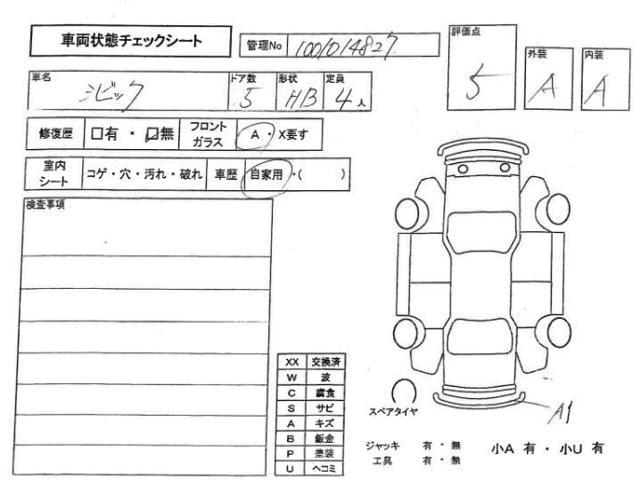 車両状態チェックシート
管理No 1001014827
評価点 5
外装 A
内装 A
車名 シビック
ドア数 5
形状 HB
定員 4人
修復歴 □有・□無
フロントガラス A・X要す
室内シート コゲ・穴・汚れ・破れ
車歴 自家用・( )
検査事項
XX 交換済
W 波
C 腐食
S サビ
A キズ
B 鈑金
P 塗装
U ヘコミ
スペアタイヤ
A1
ジャッキ 有・無
工具 有・無
小A 有・小U 有